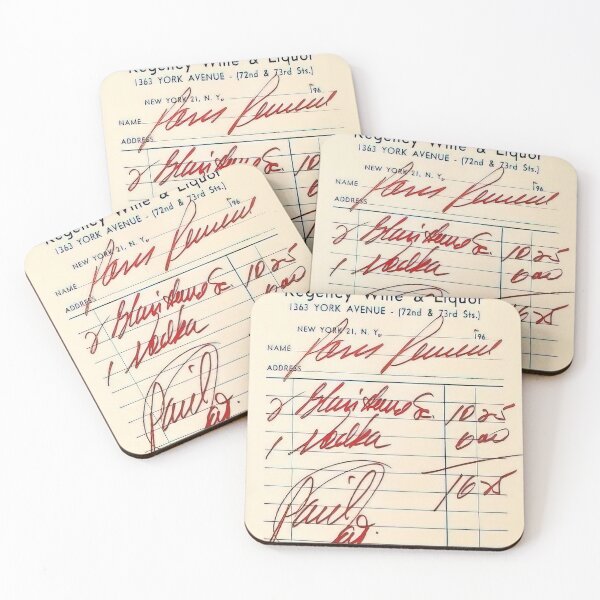 Regency Wine & Liquor
1363 YORK AVENUE - (72nd & 73rd Sts.)
NEW YORK 21, N. Y., 196
NAME Paris Review
ADDRESS
2 10
Regency Wine & Liquor
1363 YORK AVENUE - (72nd & 73rd Sts.)
NEW YORK 21, N. Y., 196
NAME Paris Review
ADDRESS
2 10 25
1 Vodka 6 00
16 25
Regency Wine & Liquor
1363 YORK AVENUE - (72nd & 73rd Sts.)
NEW YORK 21, N. Y., 196
NAME Paris Review
ADDRESS
2 10 25
1 Vodka 6 00
Paid
Regency Wine & Liquor
1363 YORK AVENUE - (72nd & 73rd Sts.)
NEW YORK 21, N. Y., 196
NAME Paris Review
ADDRESS
2 10 25
1 Vodka 6 00
16 25
Paid